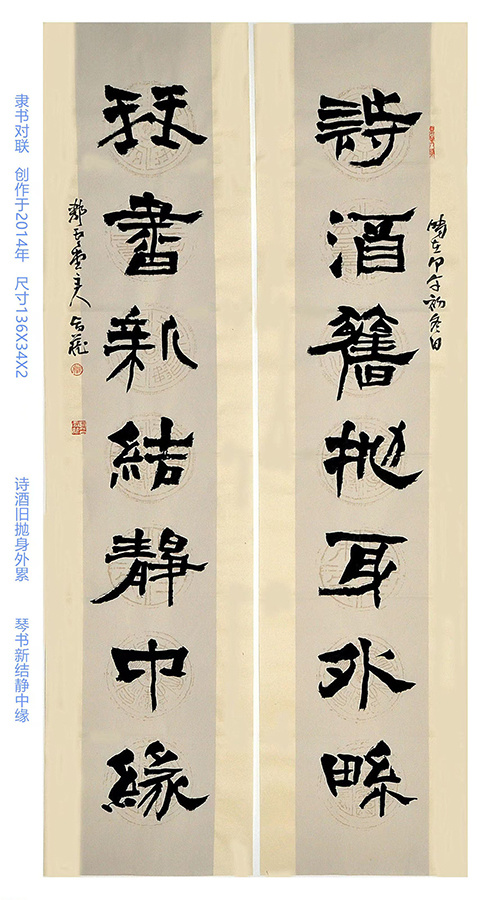 時在甲午初冬日
詩酒舊抛身外累
琴書新結靜中緣
主人
隶书对联 创作于2014年 尺寸136X34X2
诗酒旧抛身外累 琴书新结静中缘